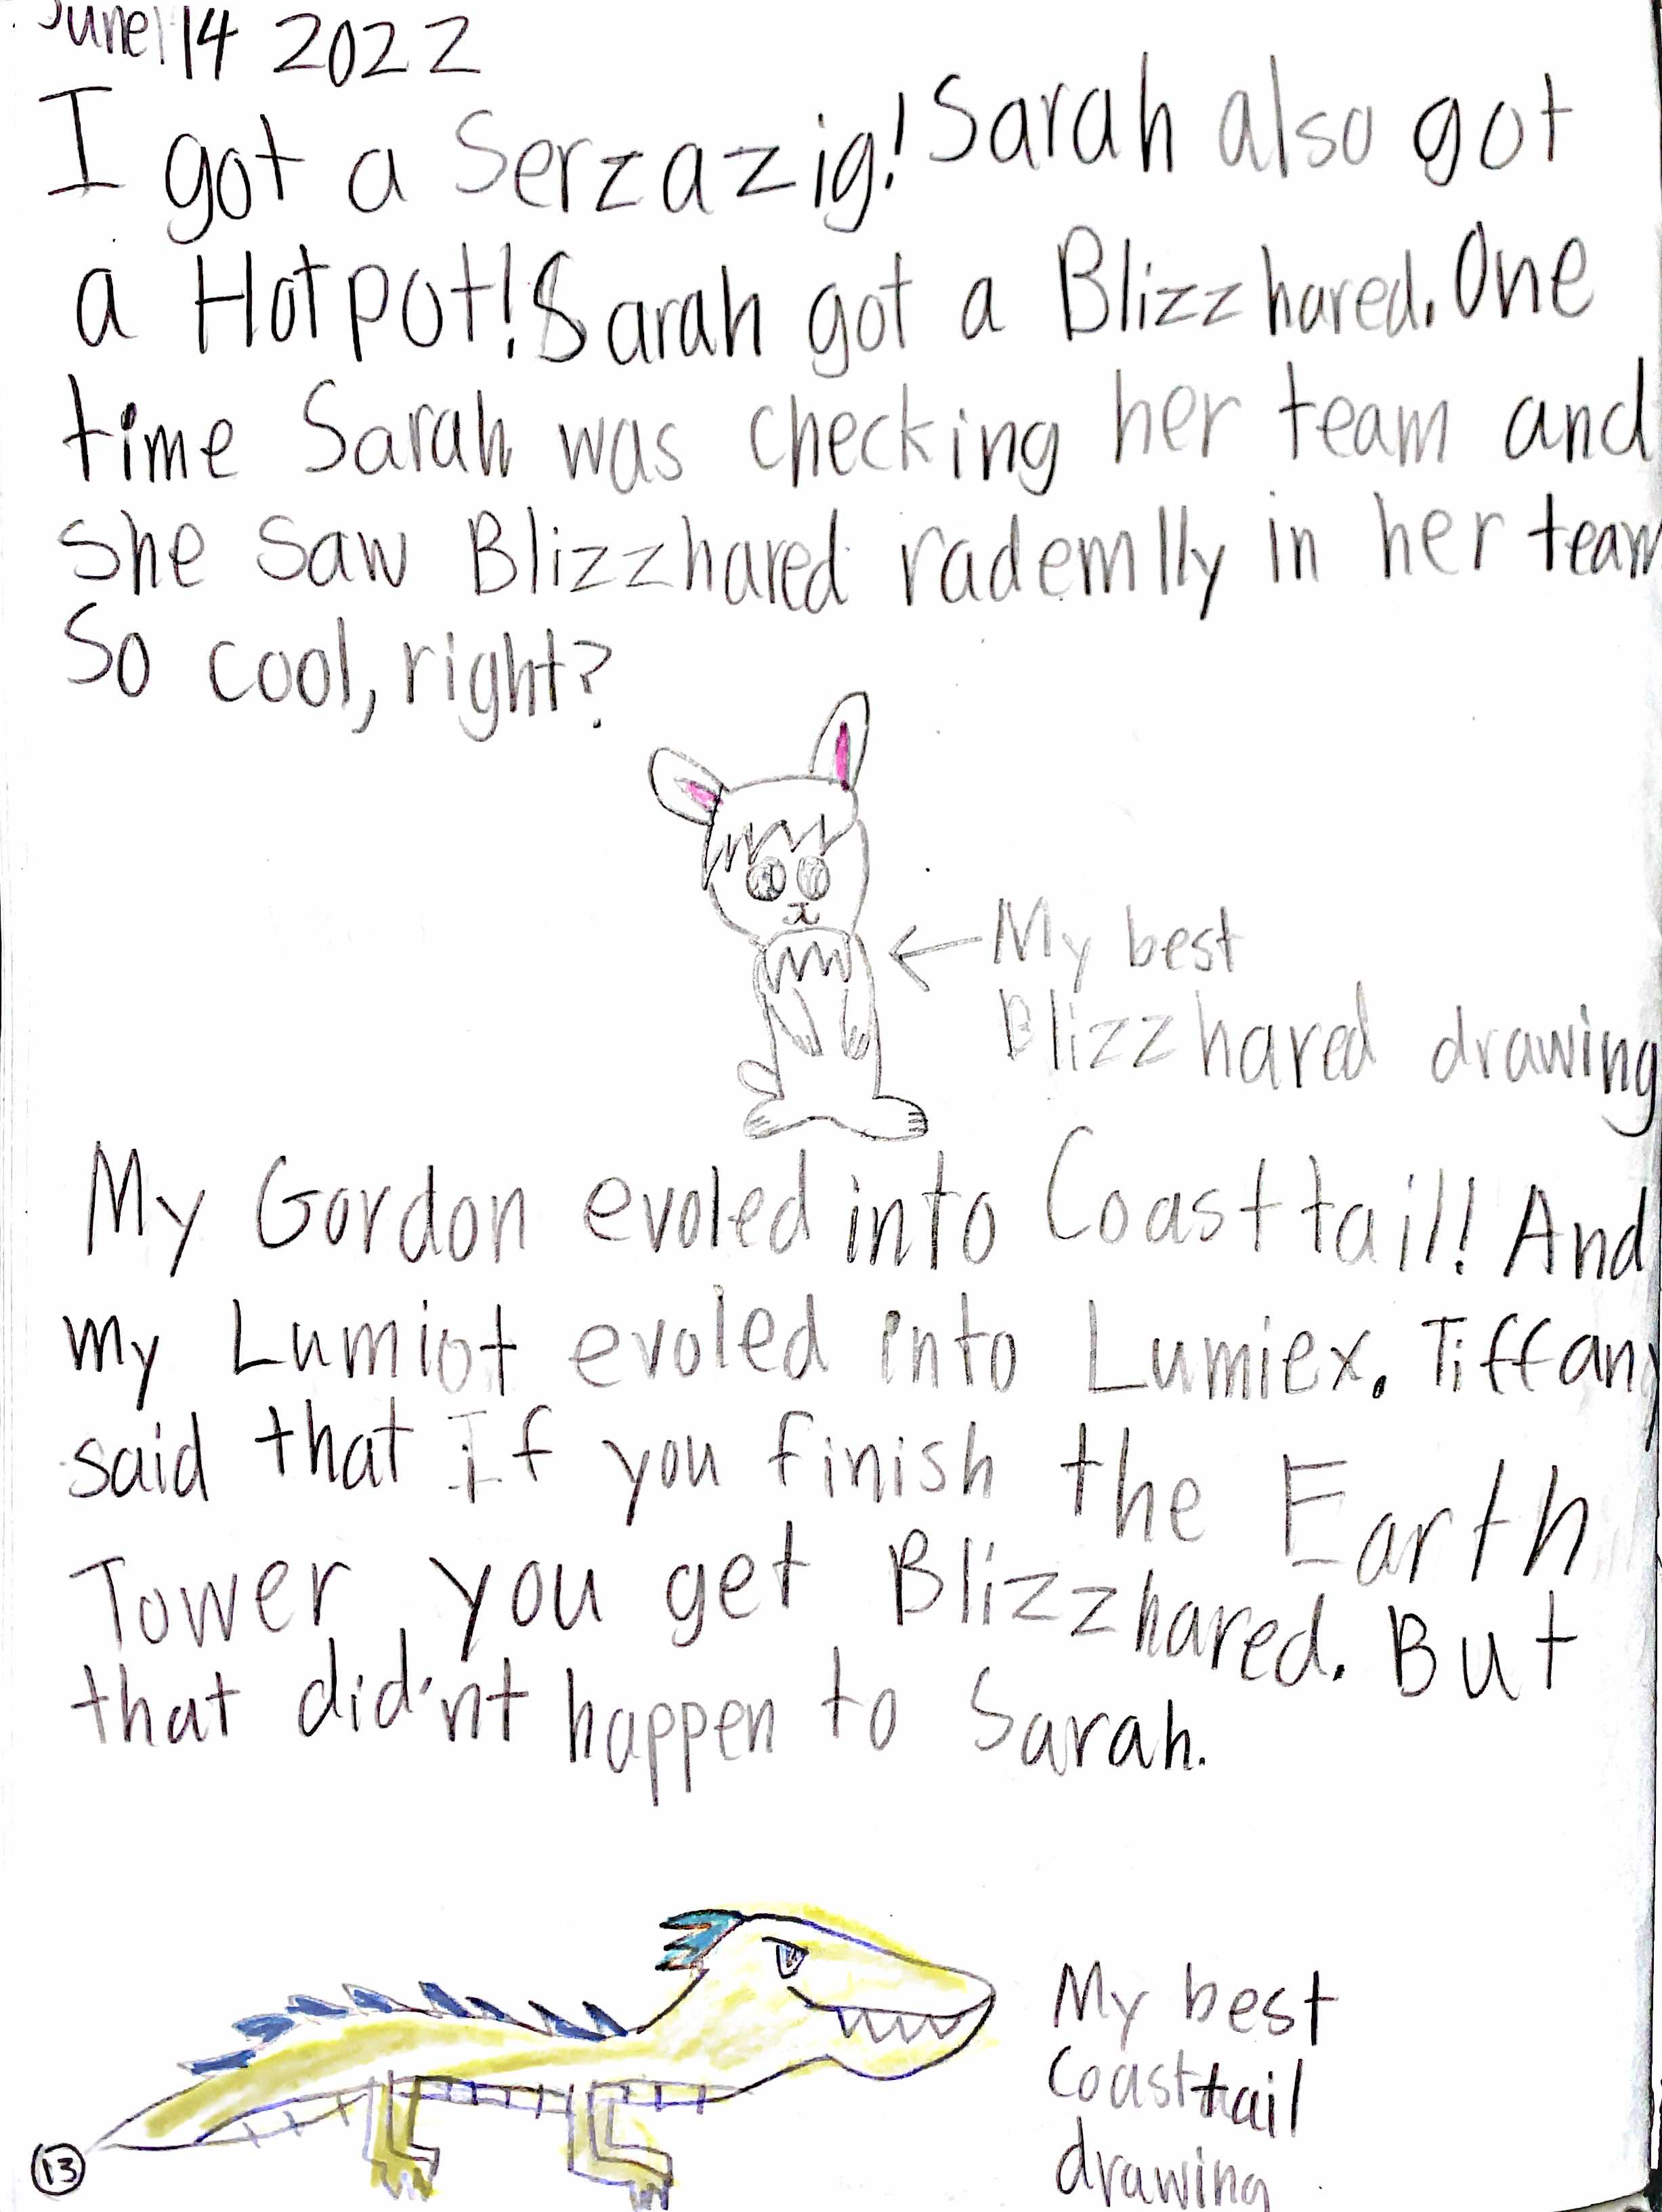 June 14 2022
I got a Serzazig! Sarah also got
a Hotpot! Sarah got a Blizzhared. One
time Sarah was checking her team and
she saw Blizzhared rademlly in her team
So cool, right?
My best
Blizzhared drawing
My Gordon evoled into Coasttail! And
my Lumiot evoled into Lumiex. Tiffany
said that If you finish the Earth
Tower you get Blizzhared. But
that did'nt happen to Sarah.
My best
Coasttail
drawing
13